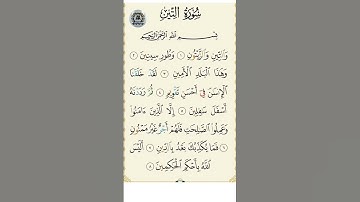 سُورَةُ التِّينِ
بِسْمِ اللَّهِ الرَّحْمَٰنِ الرَّحِيمِ
وَالتِّينِ وَالزَّيْتُونِ ١ وَطُورِ سِينِينَ ٢
وَهَٰذَا الْبَلَدِ الْأَمِينِ ٣ لَقَدْ خَلَقْنَا
الْإِنسَٰنَ فِي أَحْسَنِ تَقْوِيمٍ ٤ ثُمَّ رَدَدْنَٰهُ
أَسْفَلَ سَٰفِلِينَ ٥ إِلَّا الَّذِينَ ءَامَنُوا
وَعَمِلُوا الصَّٰلِحَٰتِ فَلَهُمْ أَجْرٌ غَيْرُ مَمْنُونٍ
٦ فَمَا يُكَذِّبُكَ بَعْدُ بِالدِّينِ ٧ أَلَيْسَ
اللَّهُ بِأَحْكَمِ الْحَٰكِمِينَ ٨